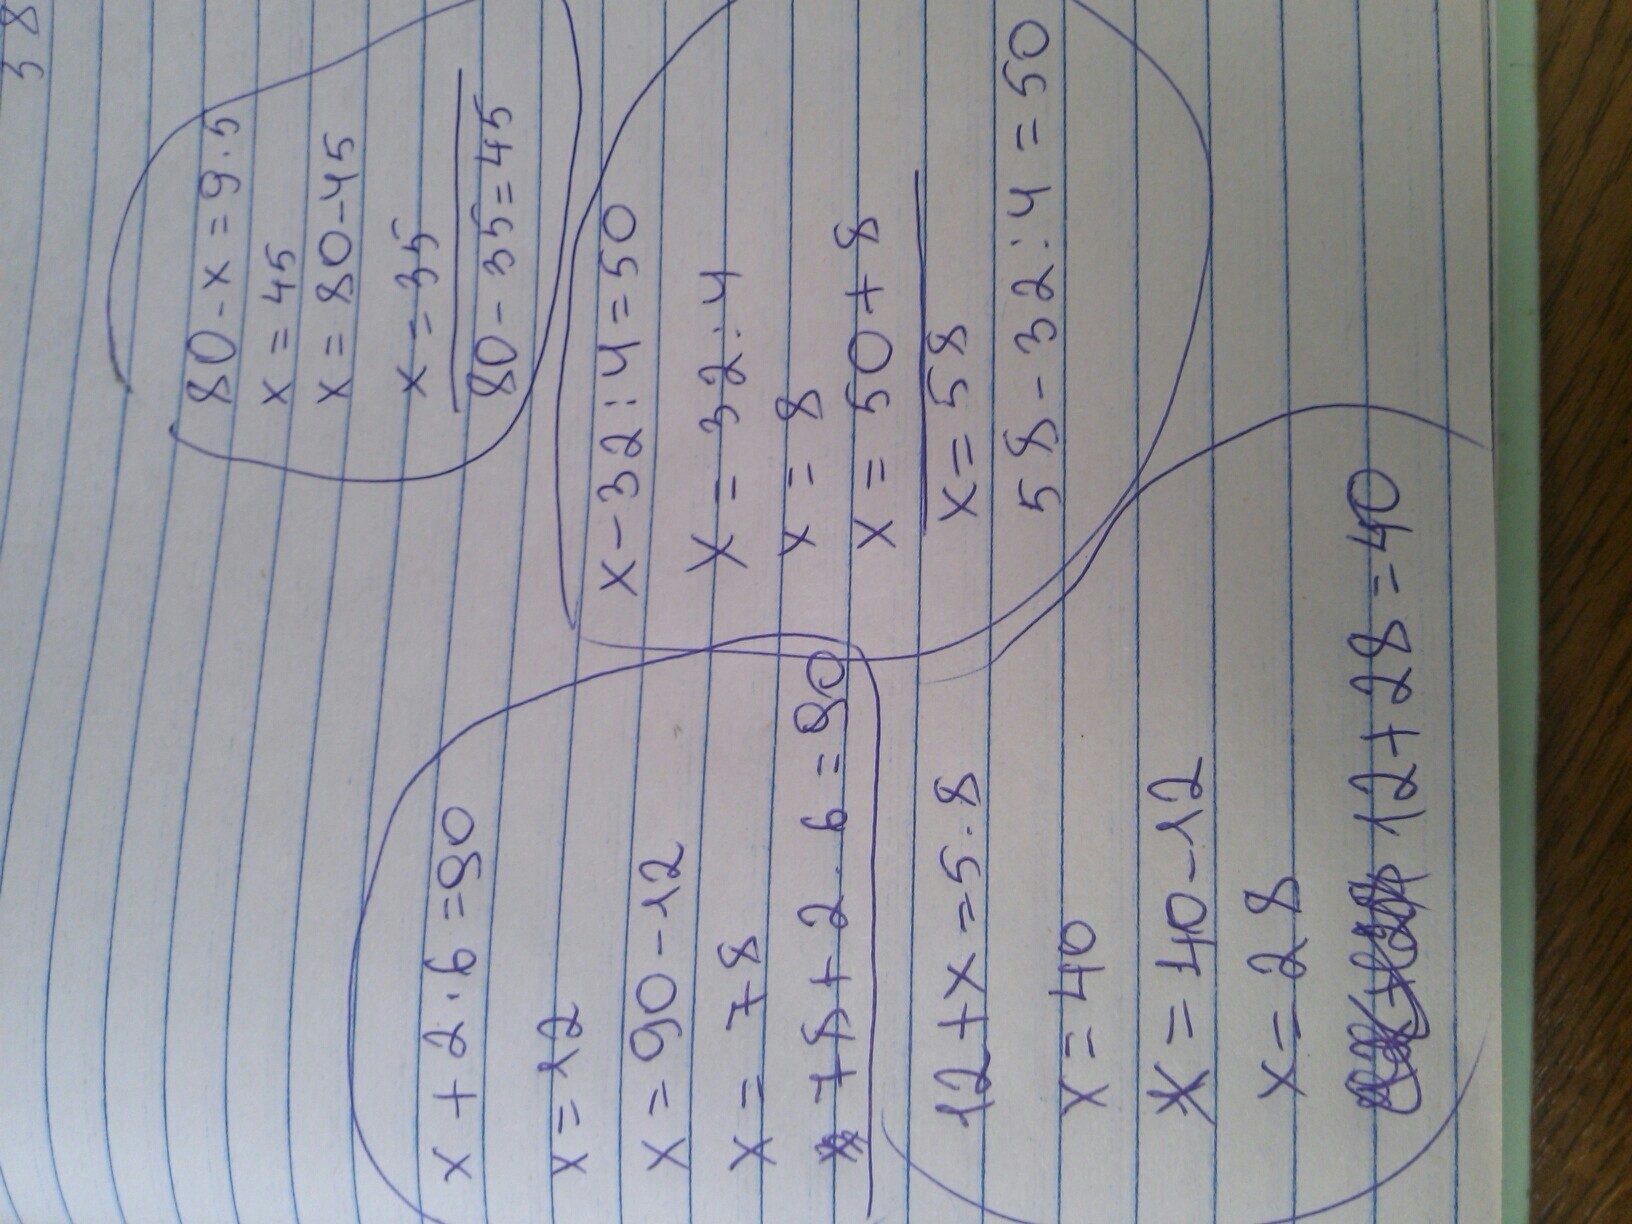 38
80 - x = 9 · 5
x = 45
x = 80 - 45
x = 35
80 - 35 = 45
x + 2 · 6 = 90
x = 12
x = 90 - 12
x = 78
78 + 2 · 6 = 90
x - 32 : 4 = 50
x = 32 : 4
x = 8
x = 50 + 8
x = 58
58 - 32 : 4 = 50
12 + x = 5 · 8
x = 40
x = 40 - 12
x = 28
12 + 28 = 40